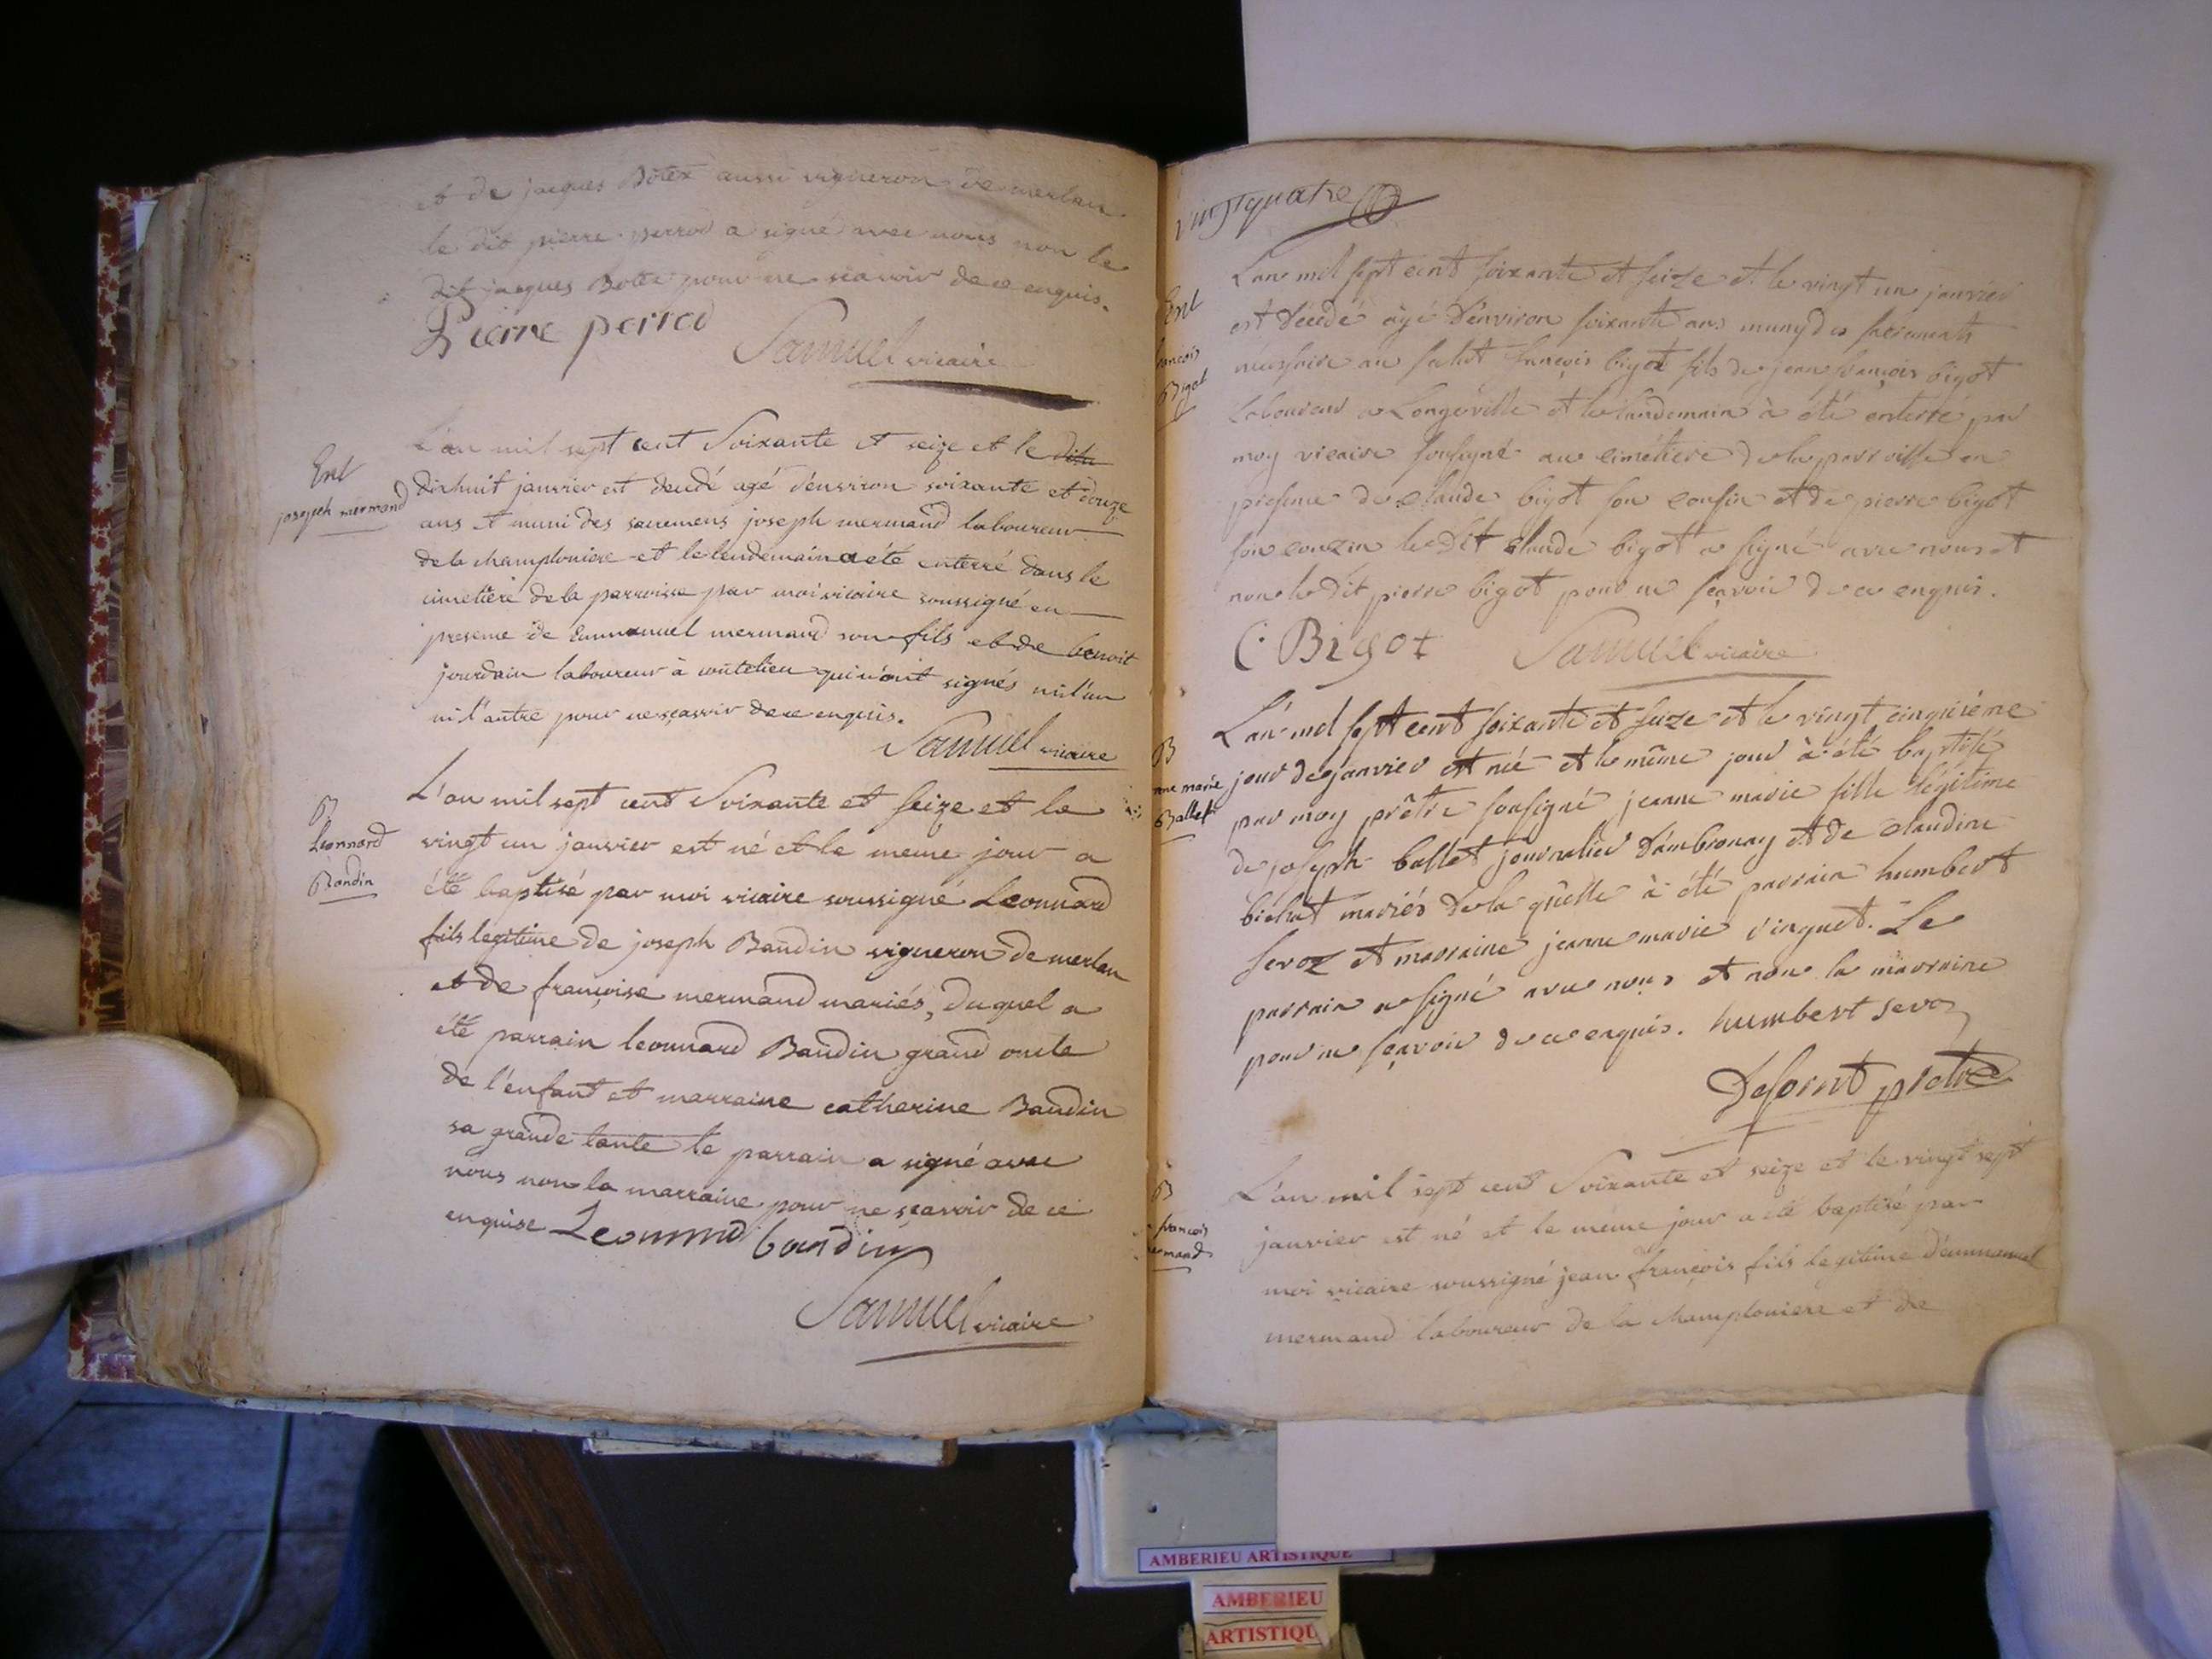 et de jacques Botex aussi vigneron de merlan
le dit pierre perrod a signé avec nous non le
dit jacques Botex pour ne scavoir de ce enquis.
Pierre perrod
Samuel vicaire
Ent
joseph mermand
L'an mil sept cent Soixante et seize et le
dixhuit janvier est decedé agé d'environ soixante et douze
ans et muni des sacremens joseph mermand laboureur
de la champloniere et le lendemain a été enterré dans le
cimetiere de la parroisse par moi vicaire soussigné en
presence de Emmanuel mermand son fils et de benoit
jourdain laboureur à coutelieu qui n'ont signés ni l'un
ni l'autre pour ne sçavoir de ce enquis.
Samuel vicaire
B
Leonnard
Baudin
L'an mil sept cent Soixante et seize et le
vingt un janvier est né et le meme jour a
été baptisé par moi vicaire soussigné Leonnard
fils legitime de joseph Baudin vigneron de merlan
et de françoise mermand mariés, duquel a
été parrain leonnard Baudin grand oncle
de l'enfant et marraine catherine Baudin
sa grande tante le parrain a signé avec
nous non la marraine pour ne sçavoir de ce
enquise Leonnard baudin
Samuel vicaire
vingt quatre
Ent
françois
Bigot
L'an mil sept cent soixante et seize et le vingt un janvier
est décédé âgé d'environ soixante ans muny des sacrements
necessaire au salut françois bigot fils de jean françois bigot
laboureur a Longeville et le landemain à été enterré par
moy vicaire sousigné au cimétiere de la parroisse en
presence de claude bigot son cousin et de pierre bigot
son couzin le dit claude bigot a signé avec nous et
non le dit pierre bigot pour ne sçavoir de ce enquis.
C Bigot
Samuel vicaire
B
anne marie
Ballet
L'an mil sept cent soixante et seize et le vingt cinquiéme
jour de janvier est née et le même jour à été baptisée
par moy prêtre sousigné jeanne marie fille légitime
de joseph ballet journalier d'ambronay et de claudine
bichat mariés de la quelle à été parrain humbert
servoz et marraine jeanne marie vinguet. Le
parrain a signé avec nous et non la marraine
pour ne sçavoir de ce enquis. humbert servoz
Desornt prêtre
B
françois
mermand
L'an mil sept cent Soixante et seize et le vingt sept
janvier est né et le meme jour a été baptisé par
moi vicaire soussigné jean françois fils legitime d'emmanuel
mermand laboureur de la champloniere et de
AMBERIEU ARTISTIQUE
AMBERIEU
ARTISTIQU